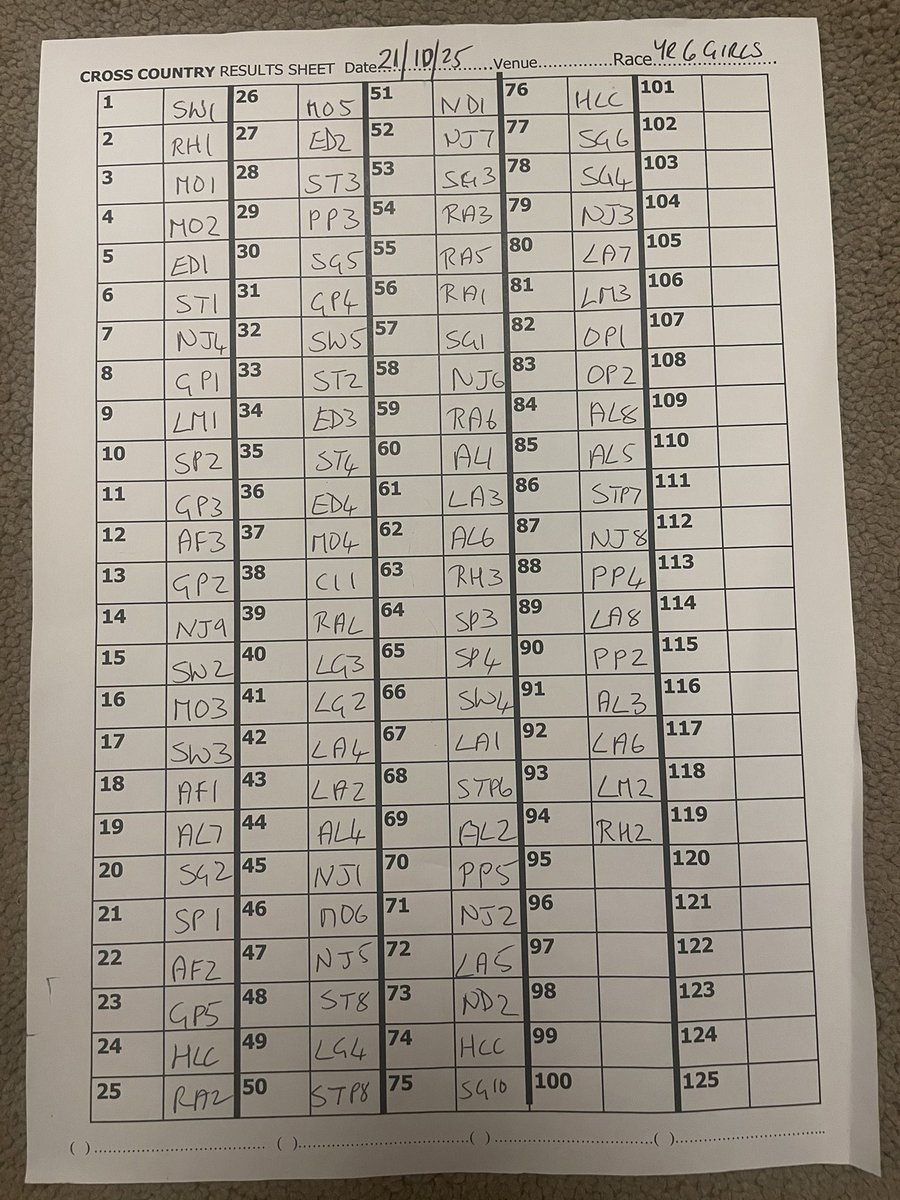 CROSS COUNTRY RESULTS SHEET Date 21/10/25 Venue Race YR 6 GIRLS
1 SW1 26 MO5 51 ND1 76 HLC 101
2 RH1 27 ED2 52 NJ7 77 SG6 102
3 MO1 28 ST3 53 SG3 78 SG4 103
4 MO2 29 PP3 54 RA3 79 NJ3 104
5 ED1 30 SG5 55 RA5 80 LA7 105
6 ST1 31 GP4 56 RA1 81 LM3 106
7 NJ4 32 SW5 57 SG1 82 OP1 107
8 GP1 33 ST2 58 NJ6 83 OP2 108
9 LM1 34 ED3 59 RA6 84 AL8 109
10 SP2 35 ST4 60 AL1 85 AL5 110
11 GP3 36 ED4 61 LA3 86 STP7 111
12 AF3 37 MO4 62 AL6 87 NJ8 112
13 GP2 38 CI1 63 RH3 88 PP4 113
14 NJ9 39 RAL 64 SP3 89 LA8 114
15 SW2 40 LG3 65 SP4 90 PP2 115
16 MO3 41 LG2 66 SW4 91 AL3 116
17 SW3 42 LA4 67 LA1 92 LA6 117
18 AF1 43 LA2 68 STP6 93 LM2 118
19 AL7 44 AL4 69 AL2 94 RH2 119
20 SG2 45 NJ1 70 PP5 95 120
21 SP1 46 MO6 71 NJ2 96 121
22 AF2 47 NJ5 72 LA5 97 122
23 GP5 48 ST8 73 ND2 98 123
24 HLC 49 LG4 74 HCC 99 124
25 RA2 50 STP8 75 SG10 100 125
( ) ( ) ( ) ( )